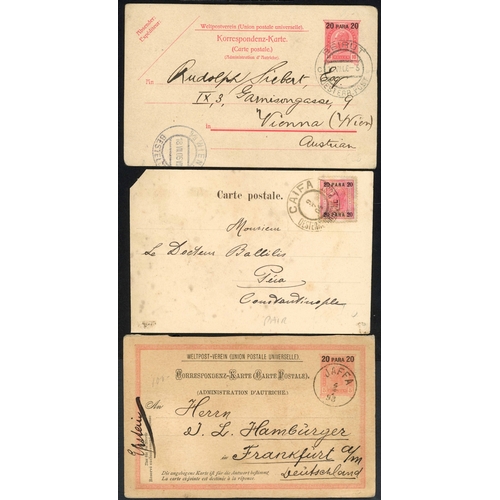 Weltpostverein (Union postale universelle).
Korrespondenz-Karte.
(Carte postale.)
(Administration d'Autriche.)
20 PARA 20
BEIRUT
An
Rudolph Siebert, Esq
IX, 3, Garnisongasse, 9
in Vienna (Wien)
Austrian
Carte postale.
CAIFA
20 PARA 20
20 PARA 20
Monsieur
Le Docteur
Péra
Constantinople
WELTPOST-VEREIN (UNION POSTALE UNIVERSELLE).
CORRESPONDENZ-KARTE (CARTE POSTALE).
(ADMINISTRATION D'AUTRICHE)
20 PARA 20
JAFFA
An
Herrn
L. Hamburger
in Frankfurt a/m
Deutschland
Epstein
Die angegebogene Karte ist für die Antwort bestimmt
La carte ci-jointe est destinée à la réponse